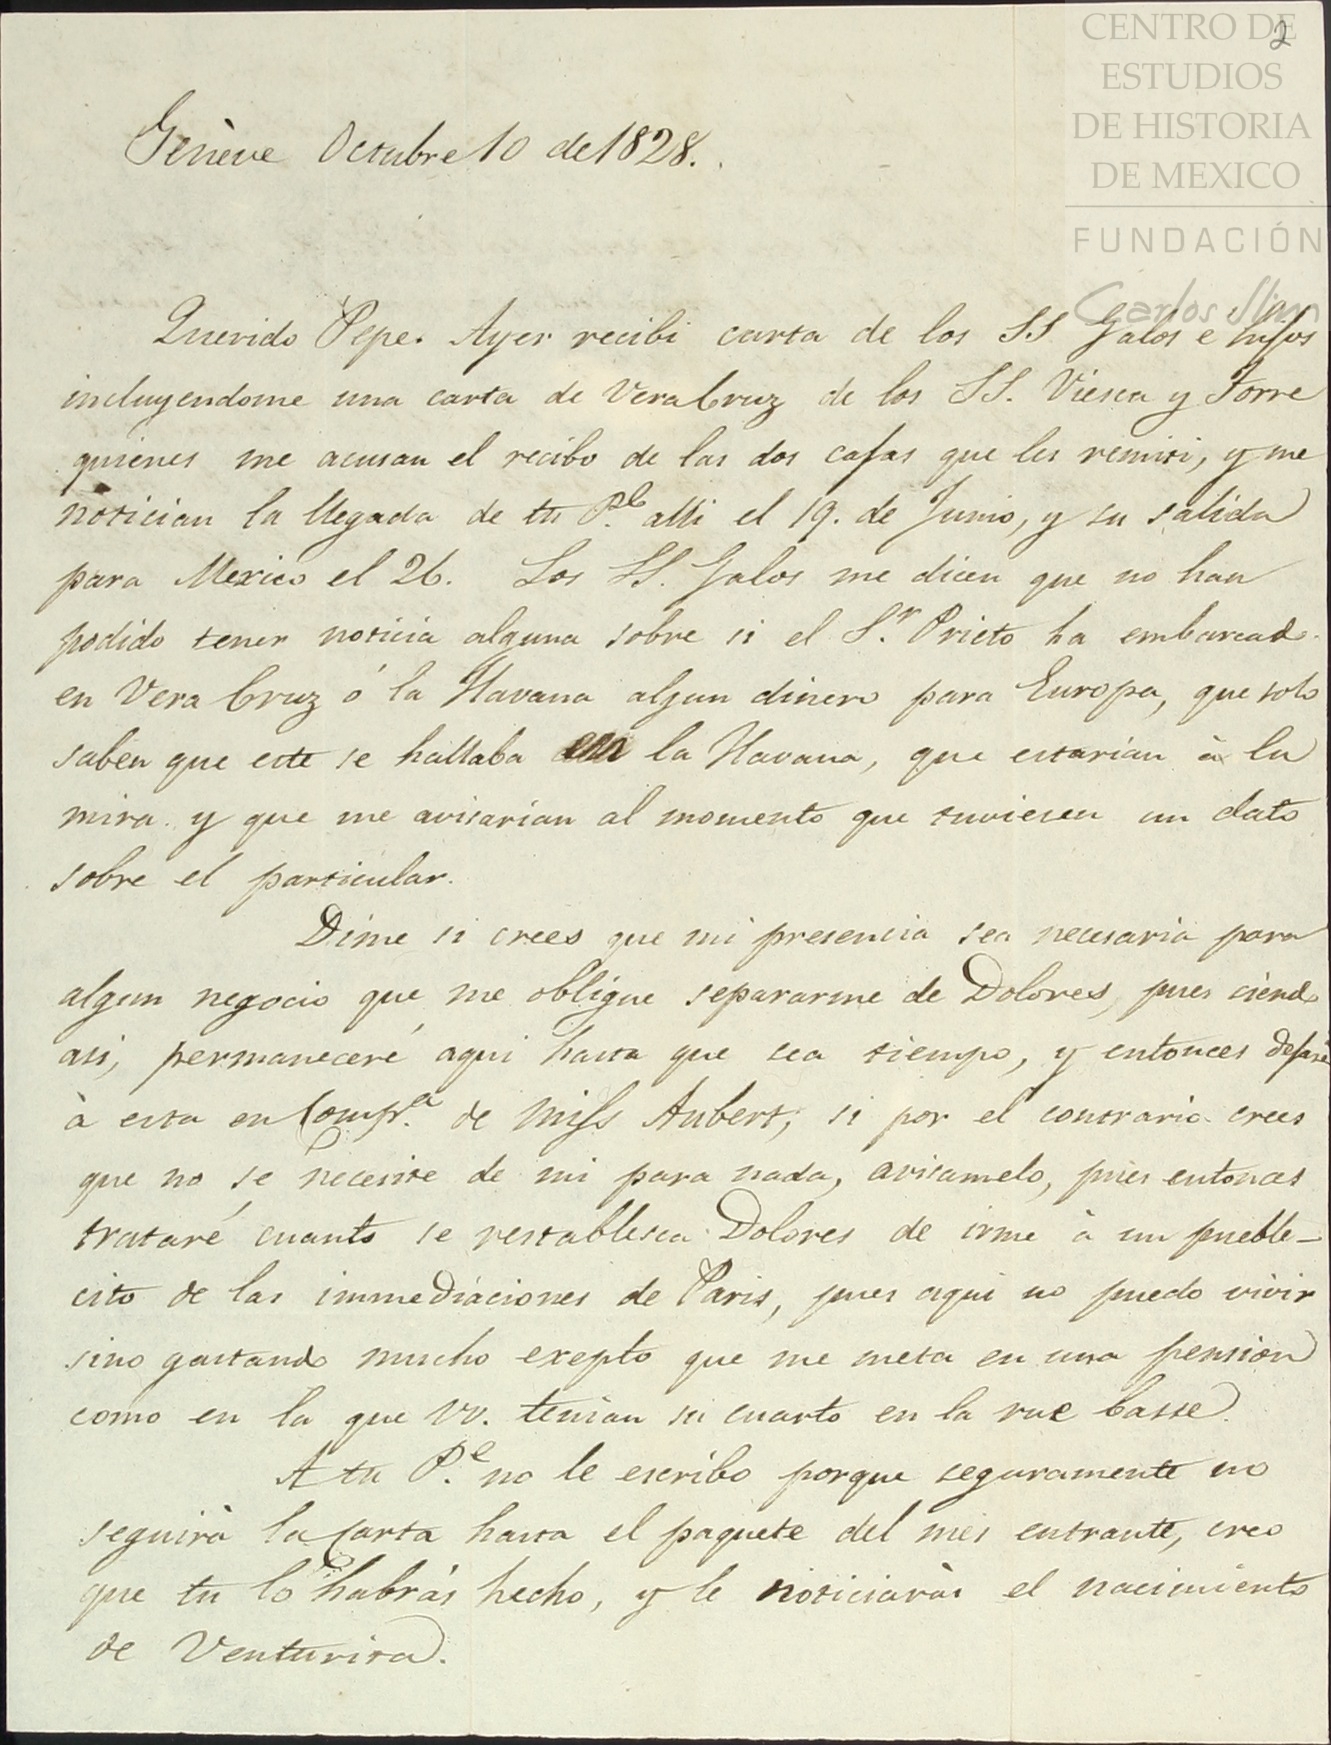 CENTRO DE
ESTUDIOS
DE HISTORIA
DE MEXICO
FUNDACIÓN
Carlos Slim
2
Genève Octubre 10 de 1828.
Querido Pepe. Ayer recibi carta de los SS Galos e hijos
incluyendome una carta de Vera Cruz de los SS. Viesca y Torre
quienes me acusan el recibo de las dos cajas que les remiti, y me
notician la llegada de tu P.e alli el 19. de Junio, y su salida
para Mexico el 26. Los SS. Galos me dicen que no han
podido tener noticia alguna sobre si el S.r Prieto ha embarcado
en Vera Cruz ó la Havana algun dinero para Europa, que solo
saben que este se hallaba en la Havana, que estarian à la
mira y que me avisarian al momento que tuviesen un dato
sobre el particular.
Dime si crees que mi presencia sea necesaria para
algun negocio que me obligue separarme de Dolores, pues siendo
asi, permaneceré aqui hasta que sea tiempo, y entonces dejaré
à esta en Comp.a de Miss Aubert, si por el contrario crees
que no se necesite de mi para nada, avisamelo, pues entonces
trataré cuanto se restablesca Dolores de irme à un pueble-
cito de las immediaciones de Paris, pues aqui no puedo vivir
sino gastando mucho exepto que me meta en una pension
como en la que VV. tenian su cuarto en la rue basse.
A tu P.e no le escribo porque seguramente no
seguirà la carta hasta el paquete del mes entrante, creo
que tu lo habràs hecho, y le noticiaràs el nacimiento
de Venturita.